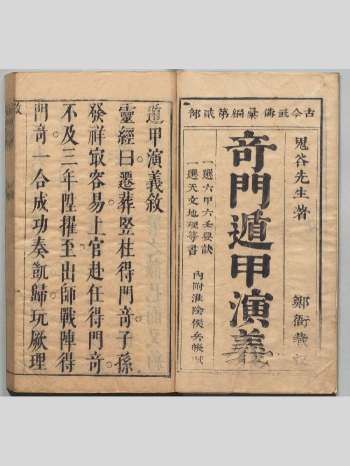 古今
第貳部
鬼谷先生著
奇門遁甲演義
一選六甲六壬要訣
一選天文地理等書
內附淮陰侯兵帳
遁甲演義敘
靈經曰遷葬豎柱得門奇子孫
發祥㝡容易上官赴任得門奇
不及三年陞擢至出師戰陣得
門奇一合成功奏凱歸玩厥理